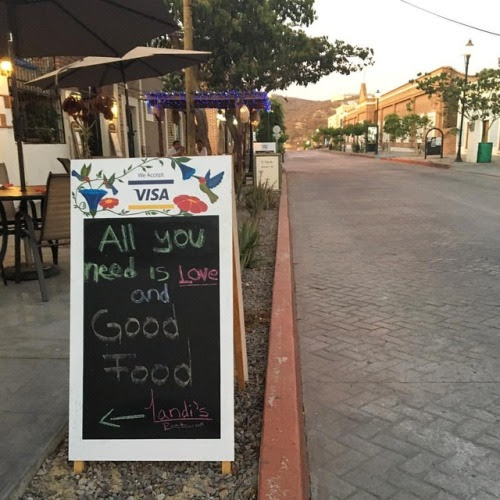 We Accept
VISA
All you
need is Love
and
Good
Food
Landi's
Restaurant